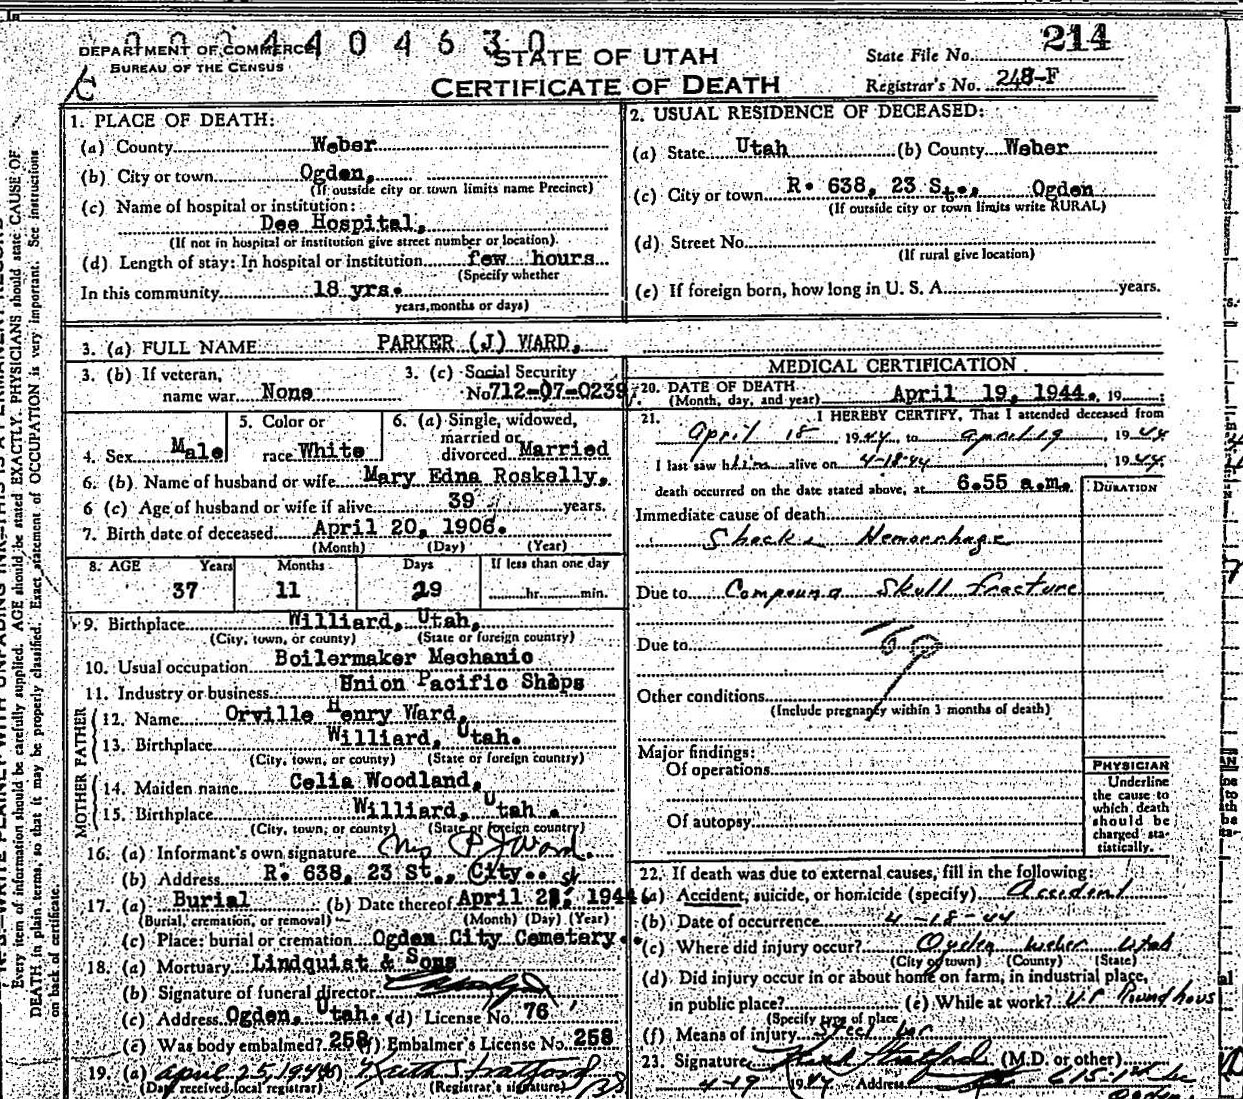 0004404630
214
DEPARTMENT OF COMMERCE
BUREAU OF THE CENSUS
STATE OF UTAH
CERTIFICATE OF DEATH
State File No.
Registrar's No. 248-F
1. PLACE OF DEATH:
(a) County Weber
(b) City or town Ogden,
(If outside city or town limits name Precinct)
(c) Name of hospital or institution:
Dee Hospital,
(If not in hospital or institution give street number or location)
(d) Length of stay: In hospital or institution few hours
(Specify whether
In this community 18 yrs.
years, months or days)
2. USUAL RESIDENCE OF DECEASED:
(a) State Utah (b) County Weber
(c) City or town R. 638, 23 St., Ogden
(If outside city or town limits write RURAL)
(d) Street No.
(If rural give location)
(e) If foreign born, how long in U. S. A. years.
3. (a) FULL NAME PARKER (J) WARD,
3. (b) If veteran, name war None
3. (c) Social Security No. 712-07-0239
4. Sex Male
5. Color or race White
6. (a) Single, widowed, married or divorced Married
6. (b) Name of husband or wife Mary Edna Roskelly,
6 (c) Age of husband or wife if alive 39 years.
7. Birth date of deceased April 20, 1906.
(Month) (Day) (Year)
8. AGE Years Months Days If less than one day
37 11 29 hr. min.
9. Birthplace Williard, Utah,
(City, town, or county) (State or foreign country)
10. Usual occupation Boilermaker Mechanic
11. Industry or business Union Pacific Shops
FATHER
12. Name Orville Henry Ward,
13. Birthplace Williard, Utah.
(City, town, or county) (State or foreign country)
MOTHER
14. Maiden name Celia Woodland,
15. Birthplace Williard, Utah.
(City, town, or county) (State or foreign country)
16. (a) Informant's own signature Mrs P J Ward.
(b) Address R. 638, 23 St., City.
17. (a) Burial (b) Date thereof April 2 , 1944
(Burial, cremation, or removal) (Month) (Day) (Year)
(c) Place: burial or cremation Ogden City Cemetary.
18. (a) Mortuary Lindquist & Sons
(b) Signature of funeral director
(c) Address Ogden, Utah. (d) License No. 76
(e) Was body embalmed? 258 (f) Embalmer's License No. 258
19. (a) April 25, 1944 (b) Keith Stratford
(Date received local registrar) (Registrar's signature)
MEDICAL CERTIFICATION
20. DATE OF DEATH April 19, 1944. 19
(Month, day, and year)
21. I HEREBY CERTIFY, That I attended deceased from
April 18, 1944, to April 19, 1944
I last saw him alive on 4-18-44, 1944
death occurred on the date stated above, at 6.55 a.m.
DURATION
Immediate cause of death
Shock & Hemorrhage
Due to Compound Skull fracture
Due to
Other conditions
(Include pregnancy within 3 months of death)
Major findings:
Of operations
Of autopsy
PHYSICIAN
Underline
the cause to
which death
should be
charged sta-
tistically.
22. If death was due to external causes, fill in the following:
(a) Accident, suicide, or homicide (specify) Accident
(b) Date of occurrence 4-18-44
(c) Where did injury occur? Ogden Weber Utah
(City or town) (County) (State)
(d) Did injury occur in or about home on farm, in industrial place,
in public place? (e) While at work? U.P Roundhous
(Specify type of place
(f) Means of injury Steel bar
23. Signature Keith Stratford (M.D. or other)
4-19 1944 Address
Every item of information should be carefully supplied. AGE should be stated EXACTLY. PHYSICIANS should state CAUSE OF
DEATH in plain terms, so that it may be properly classified. Exact statement of OCCUPATION is very important. See instructions
on back of certificate.